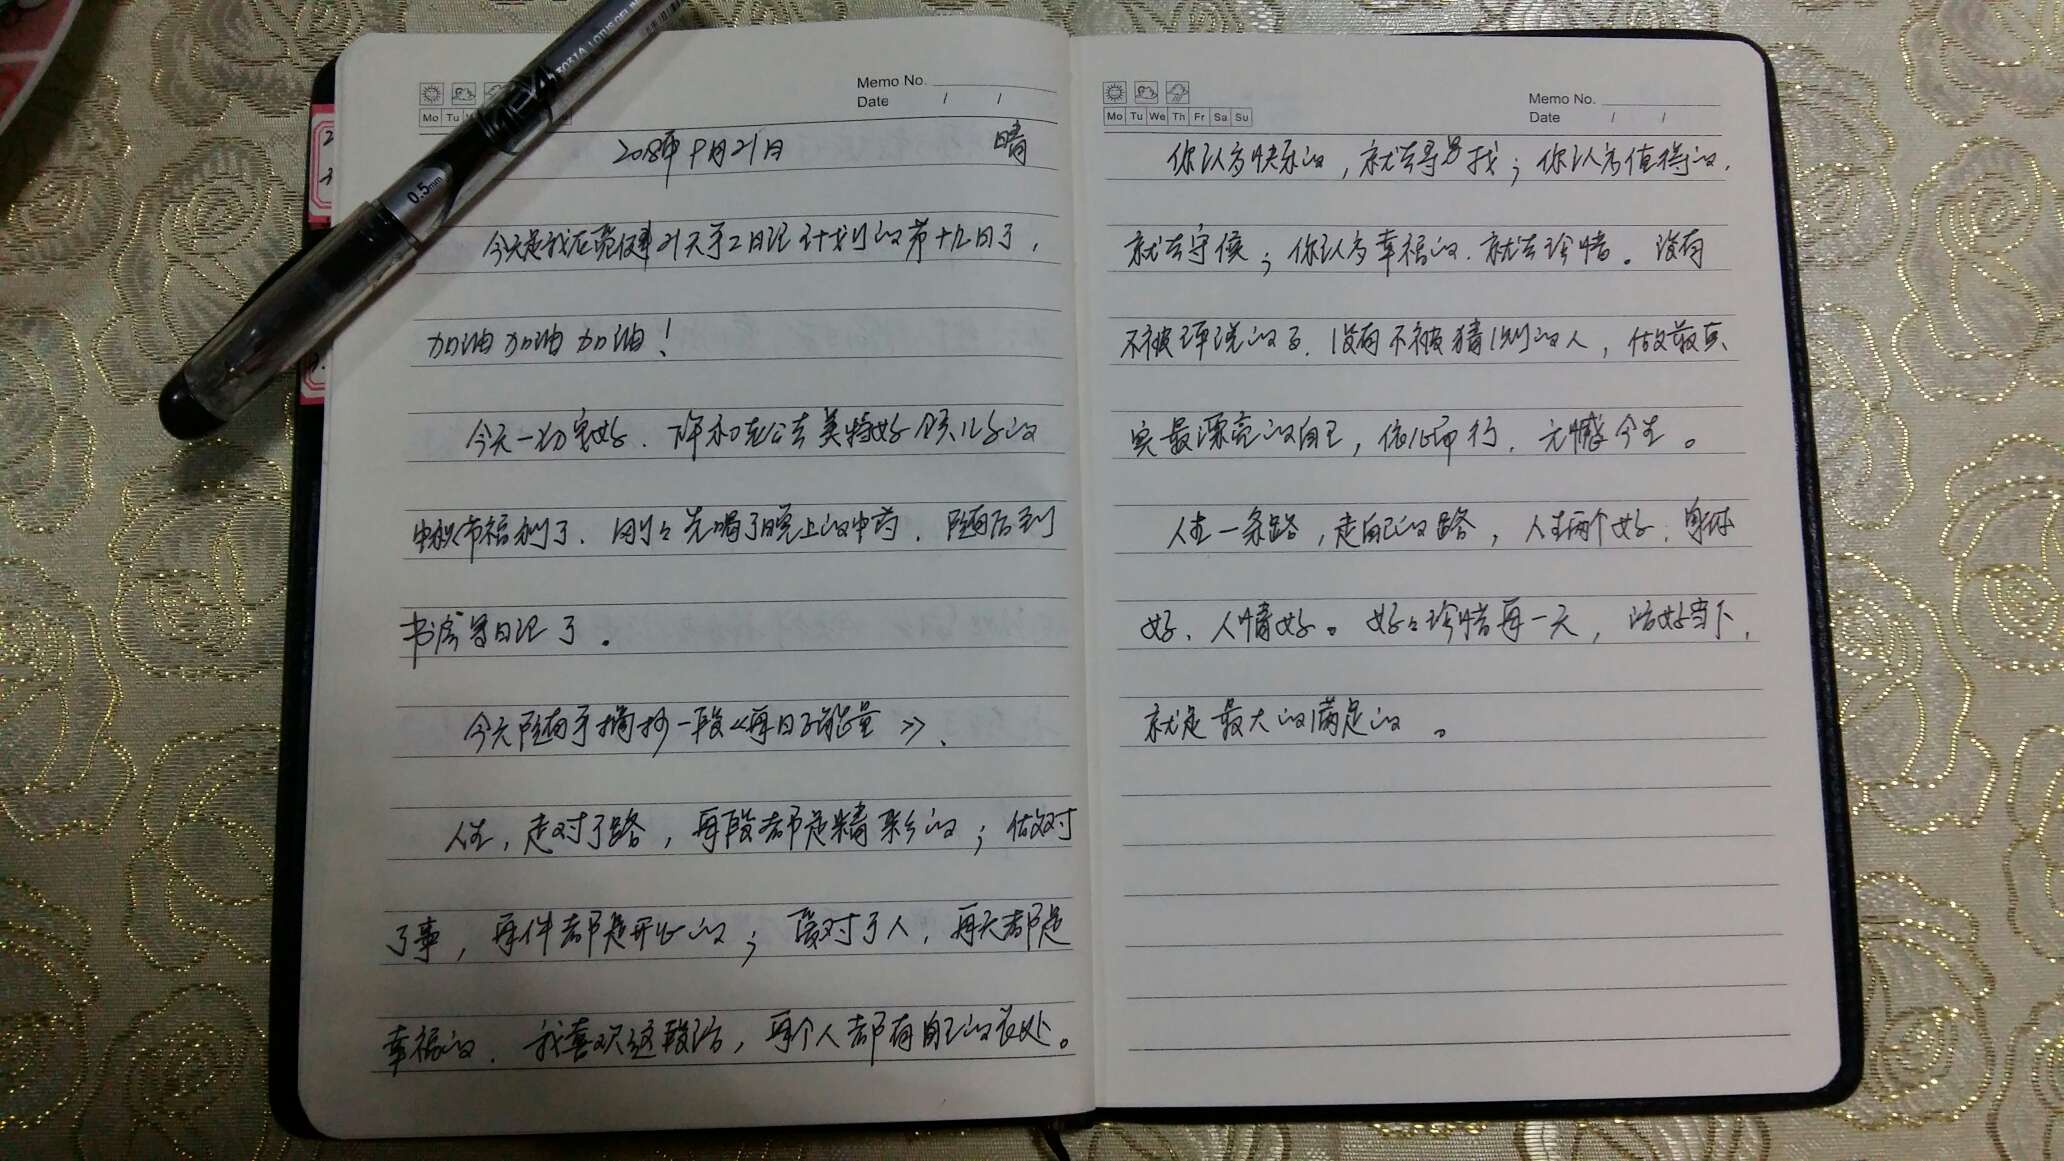 Memo No.
Date / /
Mo Tu
2018年9月21日 晴
今天是我在亮健21天手工日记计划的第十九日了，
加油加油加油！
今天一切安好、下午和老公去美特好领儿子的
中秋节福利了、刚々先喝了晚上的中药、随后到
书房写日记了。
今天随手摘抄一段《每日正能量》、
人生，走对了路，每段都是精彩的；做对
了事，每件都是开心的；爱对了人，每天都是
幸福的、我喜欢这段话，每个人都有自己的长处。
0.5mm
Memo No.
Date / /
Mo Tu We Th Fr Sa Su
你认为快乐的，就去寻找；你认为值得的，
就去守候；你认为幸福的、就去珍惜。没有
不被评说的事、没有不被猜测的人，做最真
实最漂亮的自己，依心而行、无憾今生。
人生一条路，走自己的路，人生两个好：身体
好、人情好。好々珍惜每一天，活好当下，
就是最大的满足的。